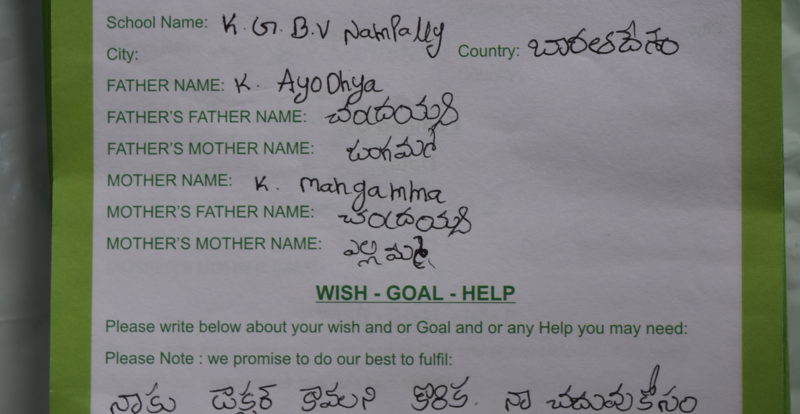 School Name: K. G. B. V Nampally
City: Country: బారతదేశం
FATHER NAME: K. Ayodhya
FATHER'S FATHER NAME: చంద్రయ్య
FATHER'S MOTHER NAME:
MOTHER NAME: K. Mangamma
MOTHER'S FATHER NAME: చంద్రయ్య
MOTHER'S MOTHER NAME: ఎల్లమ్మ
WISH - GOAL - HELP
Please write below about your wish and or Goal and or any Help you may need:
Please Note : we promise to do our best to fulfil:
నాకు డాక్టర్ కావలని కోరిక. నా చదువు కోసం